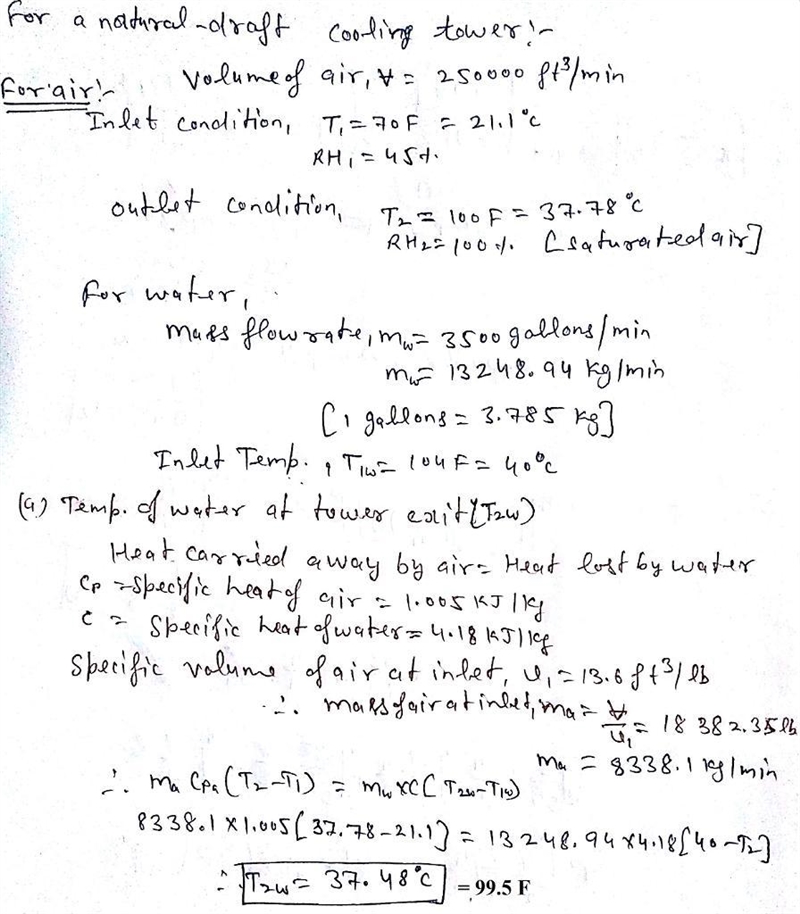 For a natural-draft cooling tower:-
For air:- Volume of air, V = 250000 ft³/min
Inlet condition, T₁ = 70F = 21.1°c
RH₁ = 45%.
outlet condition, T₂ = 100F = 37.78°c
RH₂ = 100%. [saturated air]
for water,
mass flow rate, mw = 3500 gallons/min
mw = 13248.94 kg/min
[1 gallons = 3.785 kg]
Inlet Temp., T1w = 104F = 40°c
(a) Temp. of water at tower exit (T2w)
Heat carried away by air = Heat lost by water
Cp = Specific heat of air = 1.005 KJ/kg
C = Specific heat of water = 4.18 KJ/kg
Specific volume of air at inlet, v₁ = 13.6 ft³/lb
∴ mass of air at inlet, ma = V/v₁ = 18382.35 lb
ma = 8338.1 kg/min
∴ ma Cpa (T₂-T₁) = mw×C(T2w-T1w)
8338.1×1.005[37.78-21.1] = 13248.94×4.18[40-T₂]
∴ T2w = 37.48°C = 99.5 F